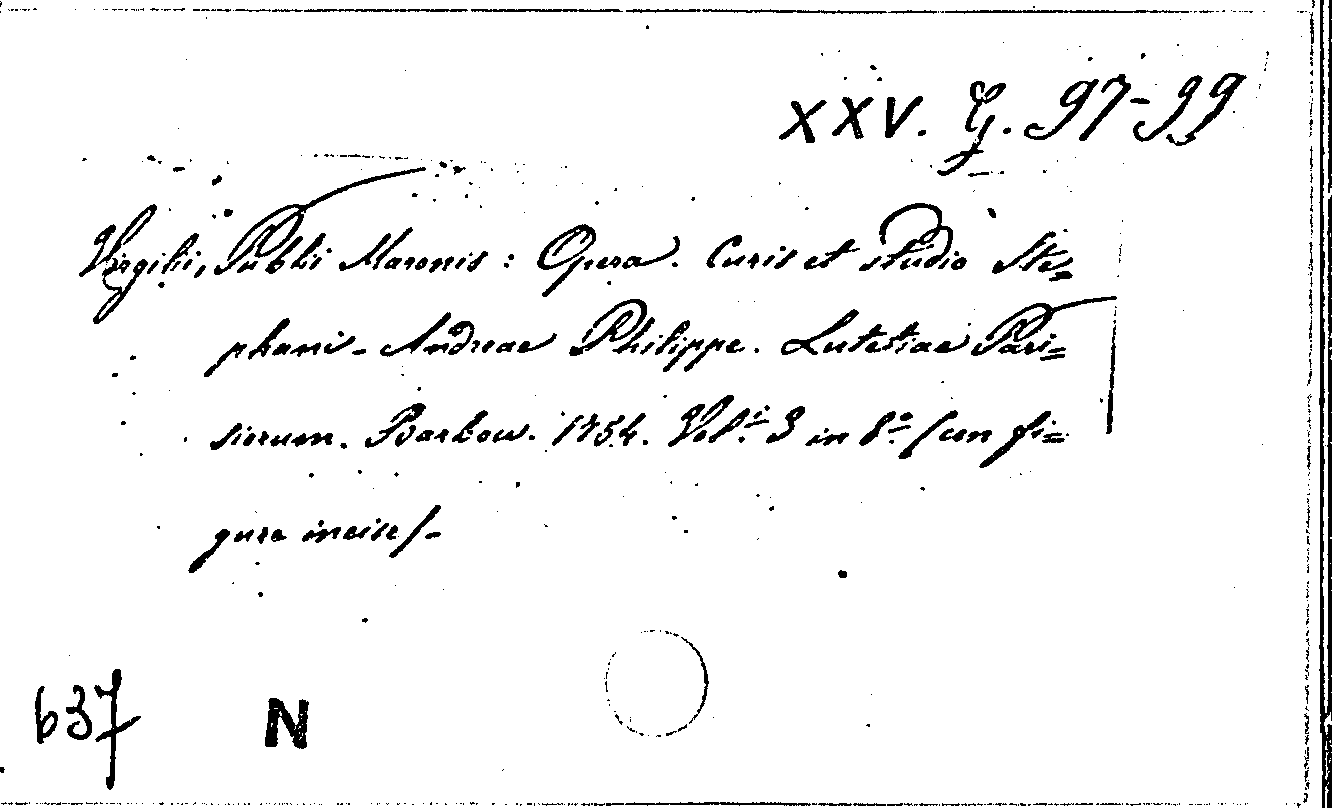 XXV. G. 97-99
Virgilii, Publii Maronis: Opera. Curis et studio Ste=
phani-Andreae Philippe. Lutetiae Pari=
siorum. Barbou. 1754. Vol.i 3 in 8.o (con fi=
gure incise)-
637 N